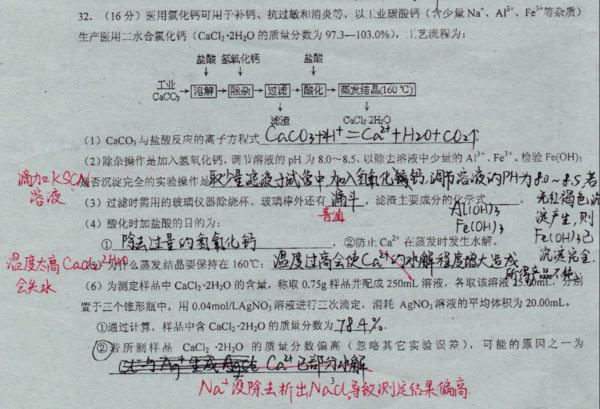 32. (16分) 医用氯化钙可用于补钙、抗过敏和消炎等，以工业碳酸钙（含少量 Na⁺、Al³⁺、Fe³⁺等杂质）
生产医用二水合氯化钙（CaCl₂·2H₂O 的质量分数为 97.3—103.0%），工艺流程为：
盐酸 氢氧化钙 盐酸
工业 CaCO₃ 溶解 除杂 过滤 酸化 蒸发结晶(160℃)
滤渣 CaCl₂·2H₂O
(1) CaCO₃与盐酸反应的离子方程式 CaCO3+H⁺=Ca²⁺+H2O+CO2↑
(2) 除杂操作是加入氢氧化钙，调节溶液的 pH 为 8.0～8.5，以除去溶液中少量的 Al³⁺、Fe³⁺。检验 Fe(OH)₃
滴加KSCN溶液
是否沉淀完全的实验操作是 取少量滤液于试管中加入氢氧化钙,调节溶液的PH为8.0~8.5,若
无红褐色沉淀产生,则Fe(OH)3已沉淀完全.
(3) 过滤时需用的玻璃仪器除烧杯、玻璃棒外还有 漏斗 。滤渣主要成分的化学式
普通
Al(OH)3
Fe(OH)3
(4) 酸化时加盐酸的目的为：
① 除去过量的氢氧化钙 ，②防止 Ca²⁺ 在蒸发时发生水解。
温度太高CaCl2·2H2O会失水
为什么蒸发结晶要保持在 160℃： 温度过高会使Ca²⁺的水解程度增大造成
所得产品不纯
(6) 为测定样品中 CaCl₂·2H₂O 的含量，称取 0.75g 样品并配成 250mL 溶液，各取该溶液 25.00mL，分别
置于三个锥形瓶中，用 0.04mol/LAgNO₃ 溶液进行三次滴定，消耗 AgNO₃ 溶液的平均体积为 20.00mL。
①通过计算，样品中含 CaCl₂·2H₂O 的质量分数为 78.4%.
②若所测样品 CaCl₂·2H₂O 的质量分数偏高（忽略其它实验误差），可能的原因之一为
Ca²⁺已部分水解
Na⁺没除去析出NaCl,导致测定结果偏高.